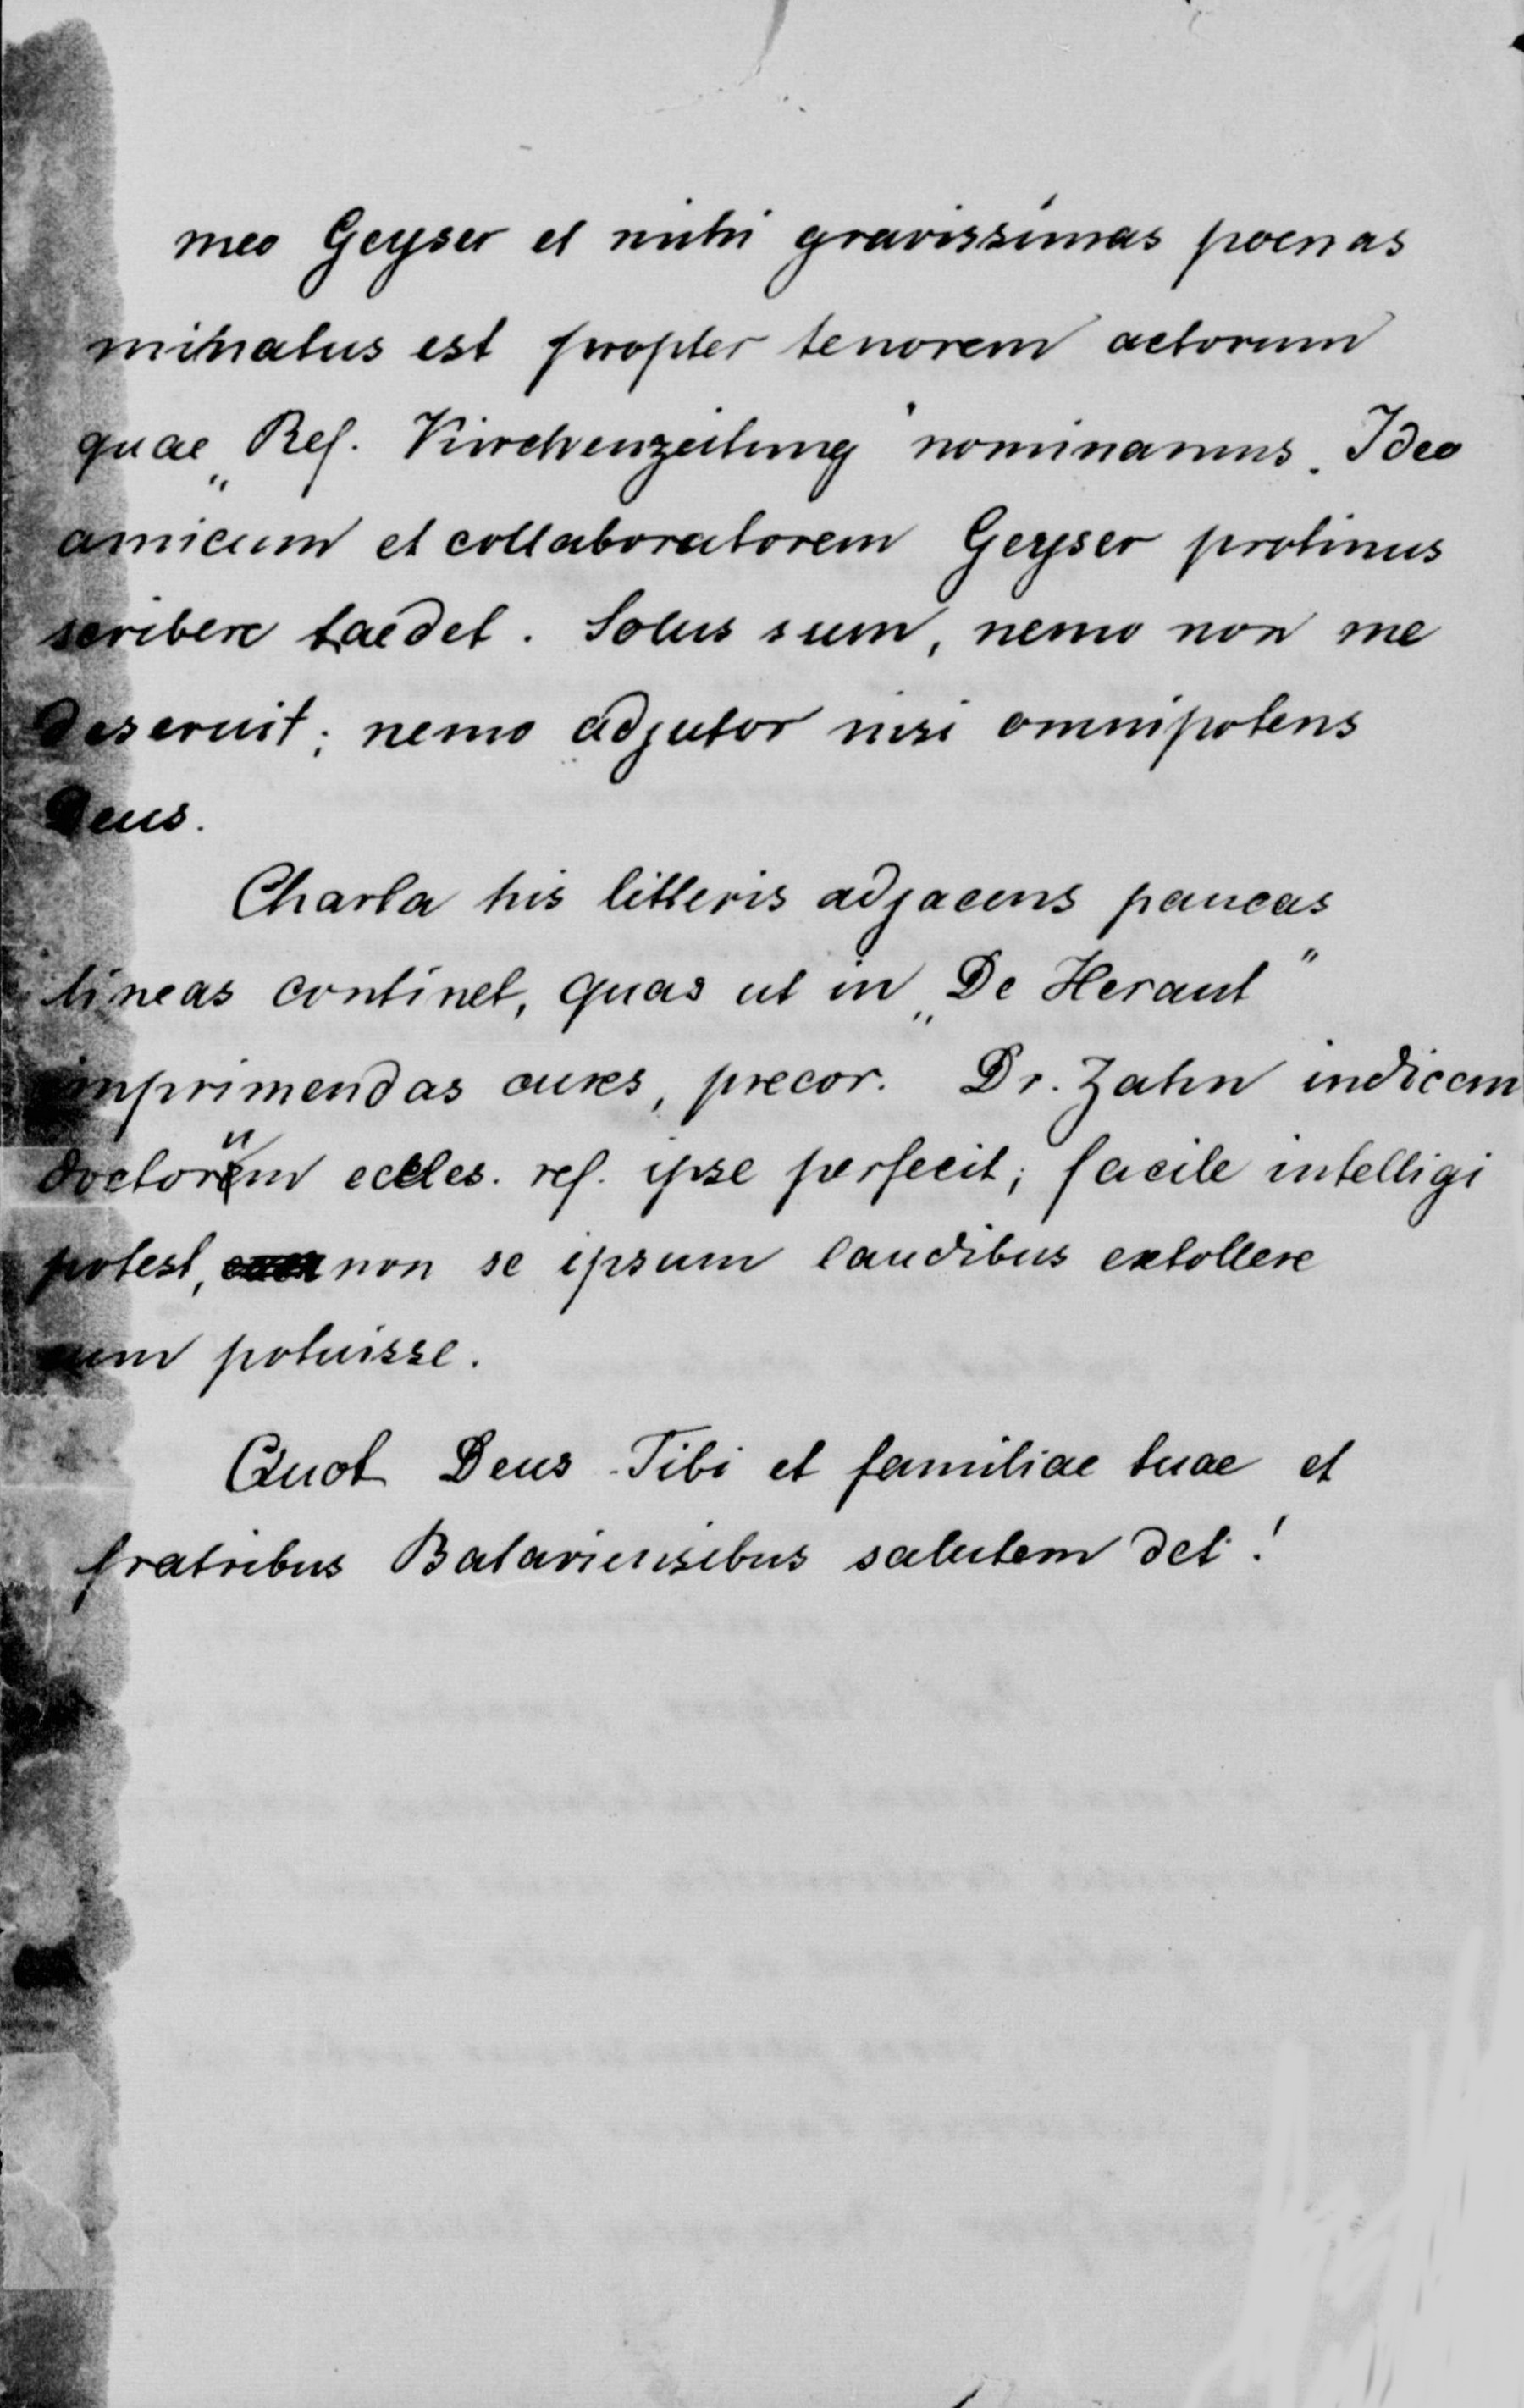 meo Geyser et mihi gravissimas poenas
minatus est propter tenorem actorum
quae „Ref. Kirchenzeitung" nominamus. Ideo
amicum et collaboratorem Geyser protinus
scribere taedet. Solus sum, nemo non me
deseruit; nemo adjutor nisi omnipotens
Deus.
Charta his litteris adjacens paucas
lineas continet, quas ut in „De Heraut"
imprimendas cures, precor. Dr. Zahn indicem
doctorum eccles. ref. ipse perfecit; facile intelligi
potest, non se ipsum laudibus extollere
eum potuisse.
Quot Deus Tibi et familiae tuae et
fratribus Bataviensibus salutem det!